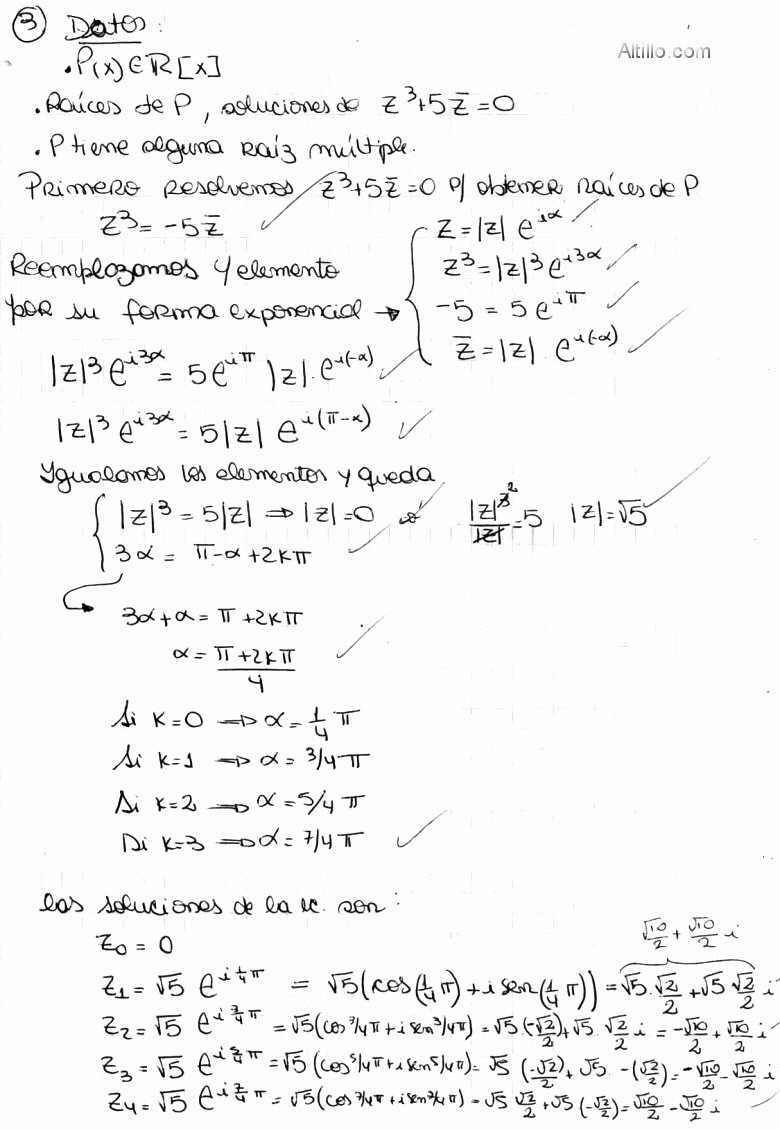 ③ Datos:
Altillo.com
• P(x) ∈ ℝ[x]
• Raíces de P, soluciones de z³+5z̄=0
• P tiene alguna raíz múltiple.
Primero resolvemos z³+5z̄=0 p/ obtener raíces de P
z³ = -5z̄
z = |z| e^{iα}
Reemplazamos y elemento
z³ = |z|³ e^{i3α}
por su forma exponencial →
-5 = 5 e^{iπ}
z̄ = |z|. e^{i(-α)}
|z|³ e^{i3α} = 5e^{iπ} |z|. e^{i(-α)}
|z|³ e^{i3α} = 5|z| e^{i(π-α)}
Igualamos los elementos y queda
|z|³ = 5|z| ⇒ |z|=0 o |z|³/|z| = 5 |z|=√5
2
3α = π-α+2kπ
3α+α = π+2kπ
α = (π+2kπ)/4
Si k=0 ⇒ α = 1/4 π
Si k=1 ⇒ α = 3/4 π
Si k=2 ⇒ α = 5/4 π
Si k=3 ⇒ α = 7/4 π
las soluciones de la ec. son:
√10/2 + √10/2 i
z₀ = 0
z₁ = √5 e^{i 1/4 π} = √5(cos(1/4 π) + i sen(1/4 π)) = √5.√2/2 + √5 √2/2 i
z₂ = √5 e^{i 3/4 π} = √5(cos 3/4π + i sen 3/4π) = √5 (-√2/2) + √5. √2/2 i = -√10/2 + √10/2 i
z₃ = √5 e^{i 5/4 π} = √5 (cos 5/4π + i sen 5/4π) = √5 (-√2/2) + √5 -(√2/2) = -√10/2 - √10/2 i
z₄ = √5 e^{i 7/4 π} = √5(cos 7/4π + i sen 7/4π) = √5 √2/2 + √5 (-√2/2) = √10/2 - √10/2 i